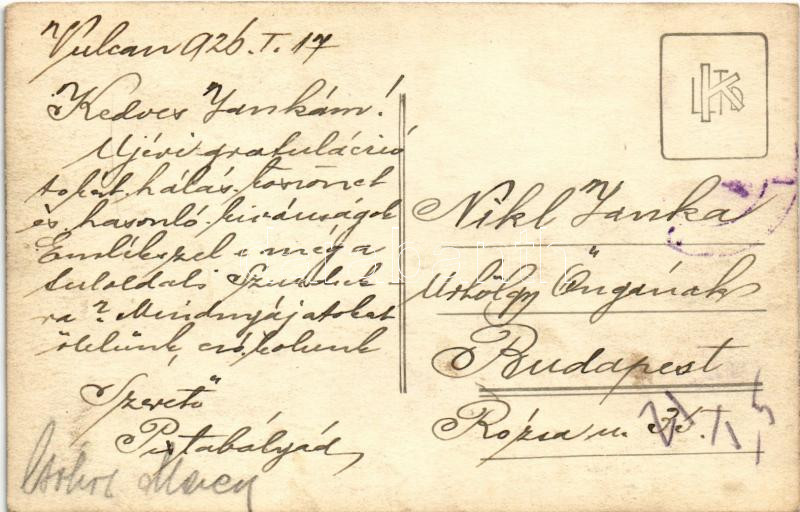 Vulcan 926. I. 17
Kedves Jankám!
Ujévi gratuláció
tokat hálás köszönet
és hasonló kivánságok
Emlékszel e még a
tuloldali Szurduk
ra? Mindnyájatokat
ölelünk, csókolunk
Szerető
Pistabátyád
Nikl Janka
Urhölgy Őngának
Budapest
Rózsa u.